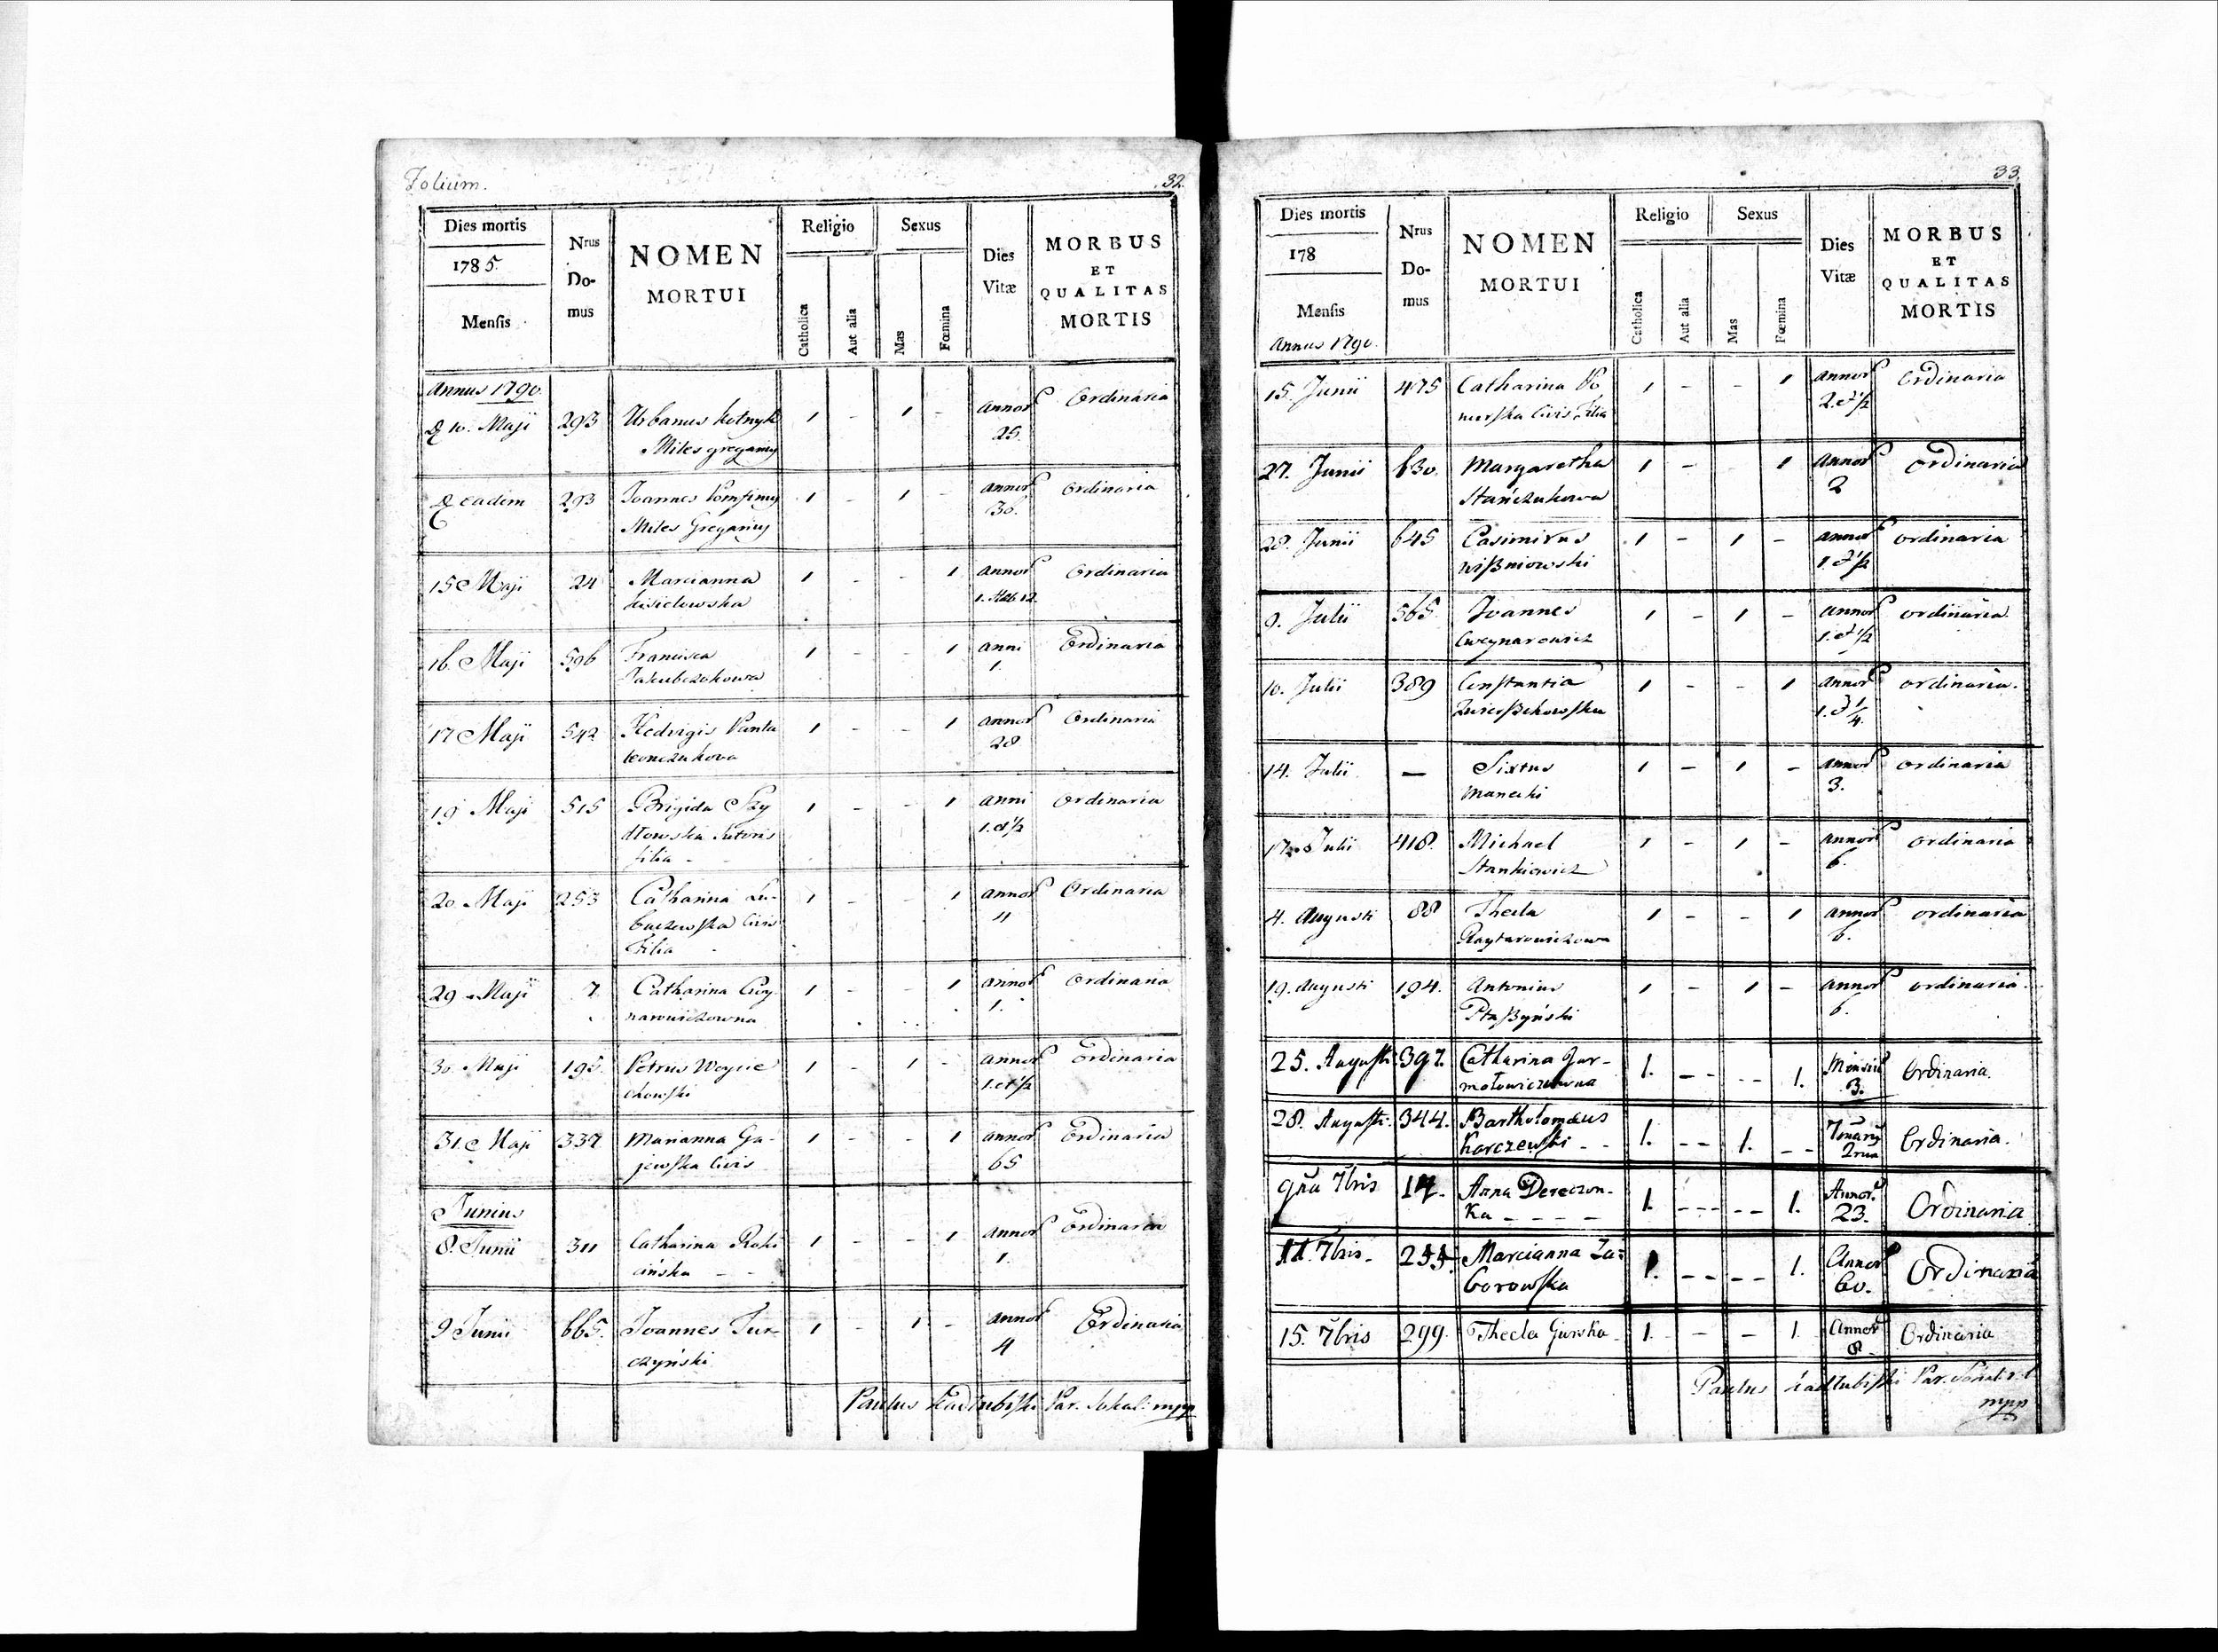 Folium. 32.
Dies mortis
1785.
Mensis
Nrus
Do-
mus
NOMEN
MORTUI
Religio
Catholica
Aut alia
Sexus
Mas
Fœmina
Dies
Vitæ
MORBUS
ET
QUALITAS
MORTIS
Annus 1790.
10. Maji 293 Urbanus Kotnyk 1 - 1 - annor Ordinaria
Miles gregarius 25.
eadem 293 Joannes 1 - 1 - annor Ordinaria
Miles Gregarius 30.
15 Maji 24 Marcianna 1 - - 1 annor Ordinaria
Kisielowska 1. Heb 12.
16. Maji 596 Francisca 1 - - 1 anni Ordinaria
Jakubczukowa 1.
17 Maji 542 Hedvigis Panta 1 - - 1 annor Ordinaria
leonczukowa 28
19 Maji 515 Brigida Szy 1 - - 1 anni Ordinaria
dłowska Sutoris 1. et 1/2
filia -
20 Maji 253 Catharina Lu- 1 - - 1 annor Ordinaria
baczewska Civis 4
Filia -
29 Maji 7 Catharina Cwy 1 - - 1 annor Ordinaria
narowiczowna 1.
30 Maji 195. Petrus Woycie 1 - 1 - annor Ordinaria
chowski 1. et 1/2
31 Maji 337 Marianna Ga- 1 - - 1 annor Ordinaria
jewska Civis 65
Junius
8. Junii 311 Catharina Roki 1 - - 1 annor Ordinaria
cińska - - 1.
9 Junii 665. Joannes Tur- 1 - 1 - annor Ordinaria
czyński 4
Paulus Kadłubiski Par. Sokal: mpp
33.
Dies mortis
178
Mensis
Annus 1790.
Nrus
Do-
mus
NOMEN
MORTUI
Religio
Catholica
Aut alia
Sexus
Mas
Fœmina
Dies
Vitæ
MORBUS
ET
QUALITAS
MORTIS
15. Junii 475 Catharina 1 - - 1 annor Ordinaria
Civis Filia 2. et 1/2
27. Junii 630. Margaretha 1 - - 1 annor Ordinaria
Stańczukowa 2
28. Junii 645 Casimirus 1 - 1 - annor ordinaria
Wißniowski 1. et 1/2
9. Julii 565. Joannes 1 - 1 - annor ordinaria
Cwynarowicz 1. et 1/2
10. Julii 389 Constantia 1 - - 1 annor ordinaria.
1. et 1/4.
14. Julii — Sixtus 1 - 1 - annor ordinaria
Manecki 3.
Julii 418. Michael 1 - 1 - annor ordinaria
Stankiewicz 6.
4. Augusti 88 Thecla 1 - - 1 annor ordinaria
6.
19. Augusti 194. Antonius 1 - 1 - annor ordinaria.
Ptaßyński 6.
25. Augusti 397. Catharina Jar- 1. - - - - 1. Mensiu Ordinaria.
mołowiczowna 3.
28. Augusti. 344. Bartholomæus 1. - - 1. - - Ordinaria.
Karczewski - -
9na 7bris 17. Anna Dereczon- 1. - - - - - 1. Annor. Ordinaria
ka - - - - 23.
11. 7bris. Marcianna Za- 1. - - - - 1. Annor Ordinaria
borowska 60.
15. 7bris 299. Thecla Gurska 1. - - 1. Annor Ordinaria
8.
Paulus Kadłubiski Par. Sokal
mpp